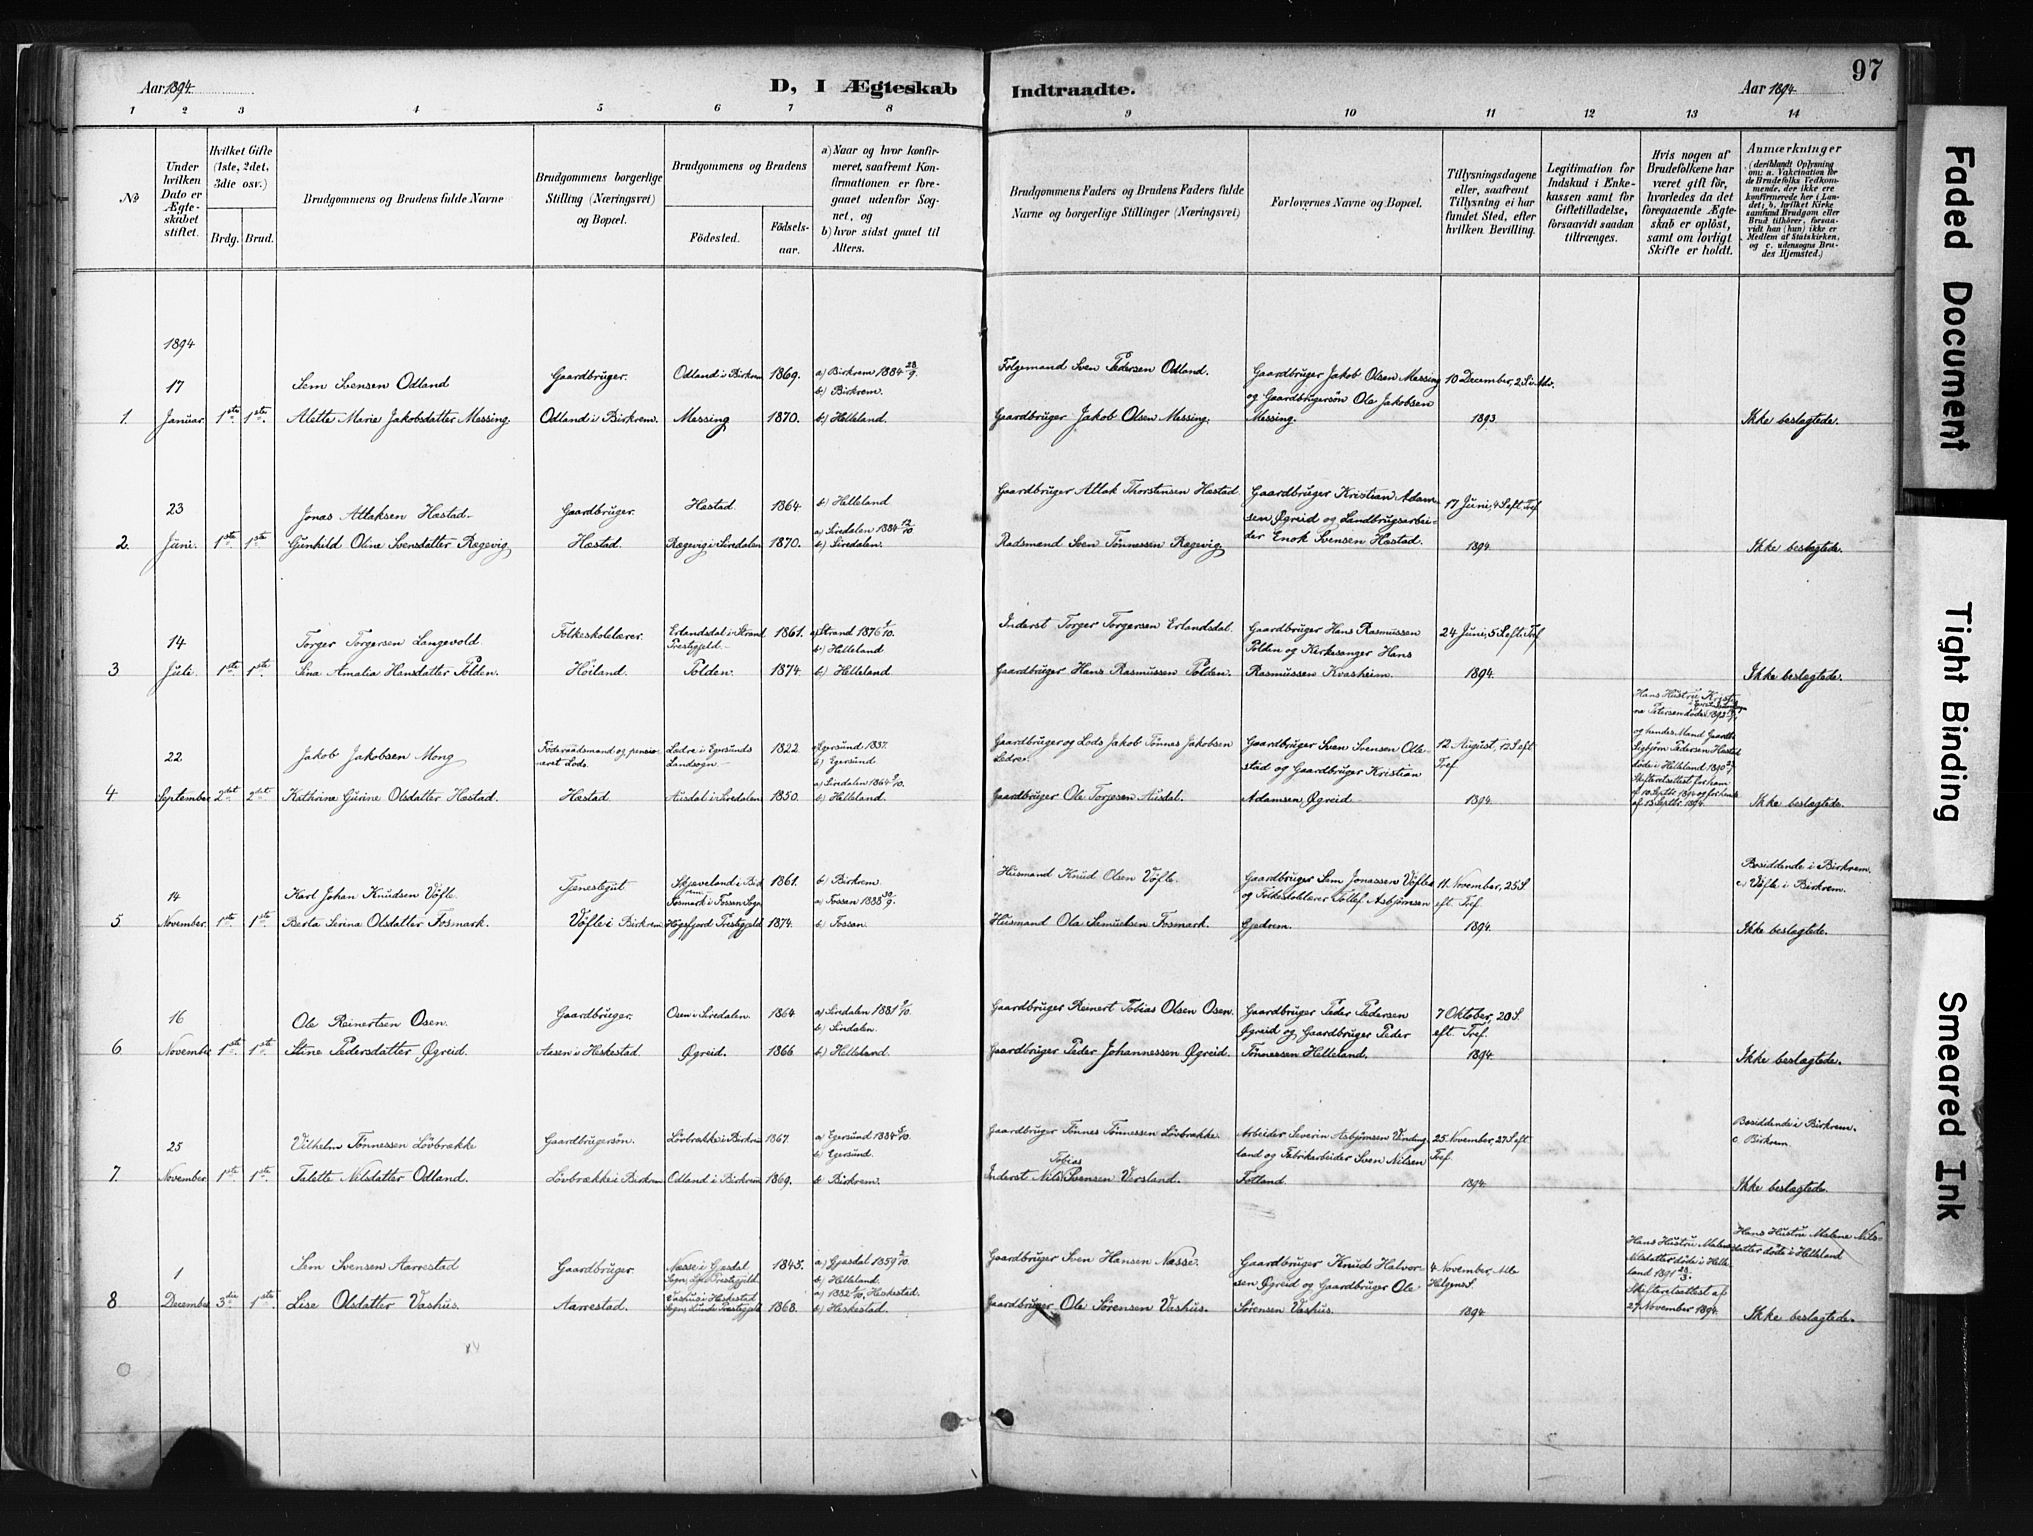 97
Aar 1894
D, I Ægteskab Indtraadte.
Aar 1894
1 2 3 4 5 6 7 8 9 10 11 12 13 14
№
Under hvilken Dato er Ægteskabet stiftet.
Hvilket Gifte (1ste, 2det, 3die osv.)
Brdg. Brud.
Brudgommens og Brudens fulde Navne
Brudgommens borgerlige Stilling (Næringsvei) og Bopæl.
Brudgommens og Brudens
Fødested.
Fødselsaar.
a) Naar og hvor konfirmeret, saafremt Konfirmationen er foregaaet udenfor Sognet, og
b) hvor sidst gaaet til Alters.
Brudgommens Faders og Brudens Faders fulde Navne og borgerlige Stillinger (Næringsvei)
Forlovernes Navne og Bopæl.
Tillysningsdagene eller, saafremt Tillysning ei har fundet Sted, efter hvilken Bevilling.
Legitimation for Indskud i Enkekassen samt for Giftetilladelse, forsaavidt saadan tiltrænges.
Hvis nogen af Brudefolkene har været gift før, hvorledes da det foregaaende Ægteskab er opløst, samt om lovligt Skifte er holdt.
Anmærkninger
(deriblandt Oplysning om: a. Vakcination for de Brudefolks Vedkommende, der ikke ere konfirmerede her i Landet; b. hvilket Kirkesamfund Brudgom eller Brud tilhører, forsaavidt han (hun) ikke er Medlem af Statskirken, og c. udensogns Brudes Hjemsted.)
1894
17 Sem Svensen Odland Gaardbruger. Odland i Birkrem 1869. a) Birkrem 1884 28/9. Følgemand Sven Pedersen Odland. Gaardbruger Jakob Olsen Messing 10 December, 2 S. i Adv.
b) Birkrem. og Gaardbrugersøn Ole Jakobsen
1. Januar. 1ste 1ste. Alette Marie Jakobsdatter Messing. Odland i Birkrem. Messing 1870. b) Helleland. Gaardbruger Jakob Olsen Messing. Messing. 1893. Ikke beslagtede.
23 Jonas Atlaksen Hæstad. Gaardbruger. Hæstad. 1864 b) Helleland Gaardbruger Atlak Thorstensen Hæstad Gaardbruger Kristian Adam- 17 Juni, 4 S eft. Tref
a) Siredalen 1884 12/10 sen Øgreid og Landbrugsarbei-
2. Juni. 1ste 1ste Gunhild Oline Svensdatter Rægevig Hæstad. Rægevig i Siredalen 1870. b) Siredalen. Radsmand Sven Tønnessen Rægevig der Enok Svensen Hæstad. 1894. Ikke beslagtede.
14 Torger Torgersen Langevold. Folkeskolelærer. Erlandsdal i Strand Prestegjeld. 1861. a) Strand 1876 1/10. Inderst Torger Torgersen Erlandsdal. Gaardbruger Hans Rasmussen 24 Juni, 5 S eft. Tref
b) Helleland Polden og Kirkesanger Hans
3 Juli. 1ste 1ste Sina Amalia Hansdatter Polden. Höiland. Polden. 1874. b) Helleland Gaardbruger Hans Rasmussen Polden. Rasmussen Kvasheim. 1894. Ikke beslagtede.
22 Jakob Jakobsen Mong Föderaadsmand og pensioneret Lods. Ladre i Egersunds Landsogn. 1822 a) Egersund 1837. b) Egersund Gaardbruger og Lods Jakob Tønnes Jakobsen Ledre. Gaardbruger Sven Svensen Ollestad og Gaardbruger Kristian 12 August, 12 S eft Tref.
Hans Hustru Kristine Petersen døde 1893 og hendes Mand Gaardb. Sigbjørn Pedersen Hæstad døde i Helleland 1890. Skifteretsattest for ham af 10 Septbr 1894 og for hende af 15 Septbr 1894.
4 September 2det 2det Kathrine Gurine Olsdatter Hæstad. Hæstad Ausdal i Siredalen 1850. a) Siredalen 1864 9/10. b) Helleland. Gaardbruger Ole Torgesen Ausdal. Adamsen Øgreid 1894. Ikke beslagtede.
14 Karl Johan Knudsen Vöfle. Tjenestegut Skjæveland i Birkrem 1861. b) Birkrem. Husmand Knud Olsen Vöfle. Gaardbruger Sem Jonassen Vöfle 11. November, 25 S eft. Tref. Bosiddende i Birkrem.
Fosmark i Fossen Sogn a) Fossan 1888 30/9. og Folkeskolelærer Tollef Asbjørnsen c) Vöfle i Birkrem.
5 November. 1ste 1ste Berta Serina Olsdatter Fosmark. Vöfle i Birkrem Høgsfjord Prestegjeld 1874. b) Fossan. Husmand Ola Samuelsen Fosmark. Gjedrem. 1894. Ikke beslagtede.
16 Ole Reinertsen Osen. Gaardbruger. Osen i Siredalen. 1864 a) Siredalen 1881 9/10. b) Siredalen. Gaardbruger Reinert Tobias Olsen Osen. Gaardbruger Peder Pedersen 7 Oktober, 20 S. eft. Tref.
Øgreid og Gaardbruger Peder
6 November 1ste 1ste Stine Pedersdatter Øgreid. Aasen i Heskestad. Øgreid. 1866 b) Helleland. Gaardbruger Peder Johannessen Øgreid. Tønnessen Helleland. 1894 Ikke beslagtede.
25 Vilhelm Tønnessen Lövbrække Gaardbrugersøn. Lövbrække i Birkrem 1867. a) Egersund 1884 5/10. b) Egersund. Gaardbruger Tønnes Tønnessen Lövbrække. Arbeider Severin Asbjørnsen Vinding- 25 November, 27 S eft. Tref. Bosiddende i Birkrem.
land og Fabrikarbeider Sven Nilsen c Birkrem.
7. November. 1ste 1ste Talette Nilsdatter Odland. Lövbrække i Birkrem Odland i Birkrem 1869. b Birkrem. Inderst Nils Tobias Svensen Versland. Fotland. 1894. Ikke beslagtede.
1 Sem Svensen Aarrestad Gaardbruger Næsse i Gjesdal Sogn, Lye Prestegjeld. 1843. a) Gjesdal 1859 2/10. b) Helleland. Gaardbruger Sven Hansen Næsse. Gaardbruger Knud Halvor- 4 November, Alle Helgens S. Hans Hustru Malene Nilsdatter døde i Helleland 1891 28/3. Skifteretsattest af 27 November 1894. Hans Hustru Malene Nils-
datter døde i Helleland
Vashus i Heskestad a) 1882 1/10, Heskestad. sen Øgreid og Gaardbruger Ole
8 December 3die 1ste Lise Olsdatter Vashus. Aarrestad. Sogn, Lunde Prestegjeld 1868. b) Heskestad. Gaardbruger Ole Sørensen Vashus. Sørensen Vashus. 1894. Ikke beslagtede.
Faded Document
Tight Binding
Smeared Ink